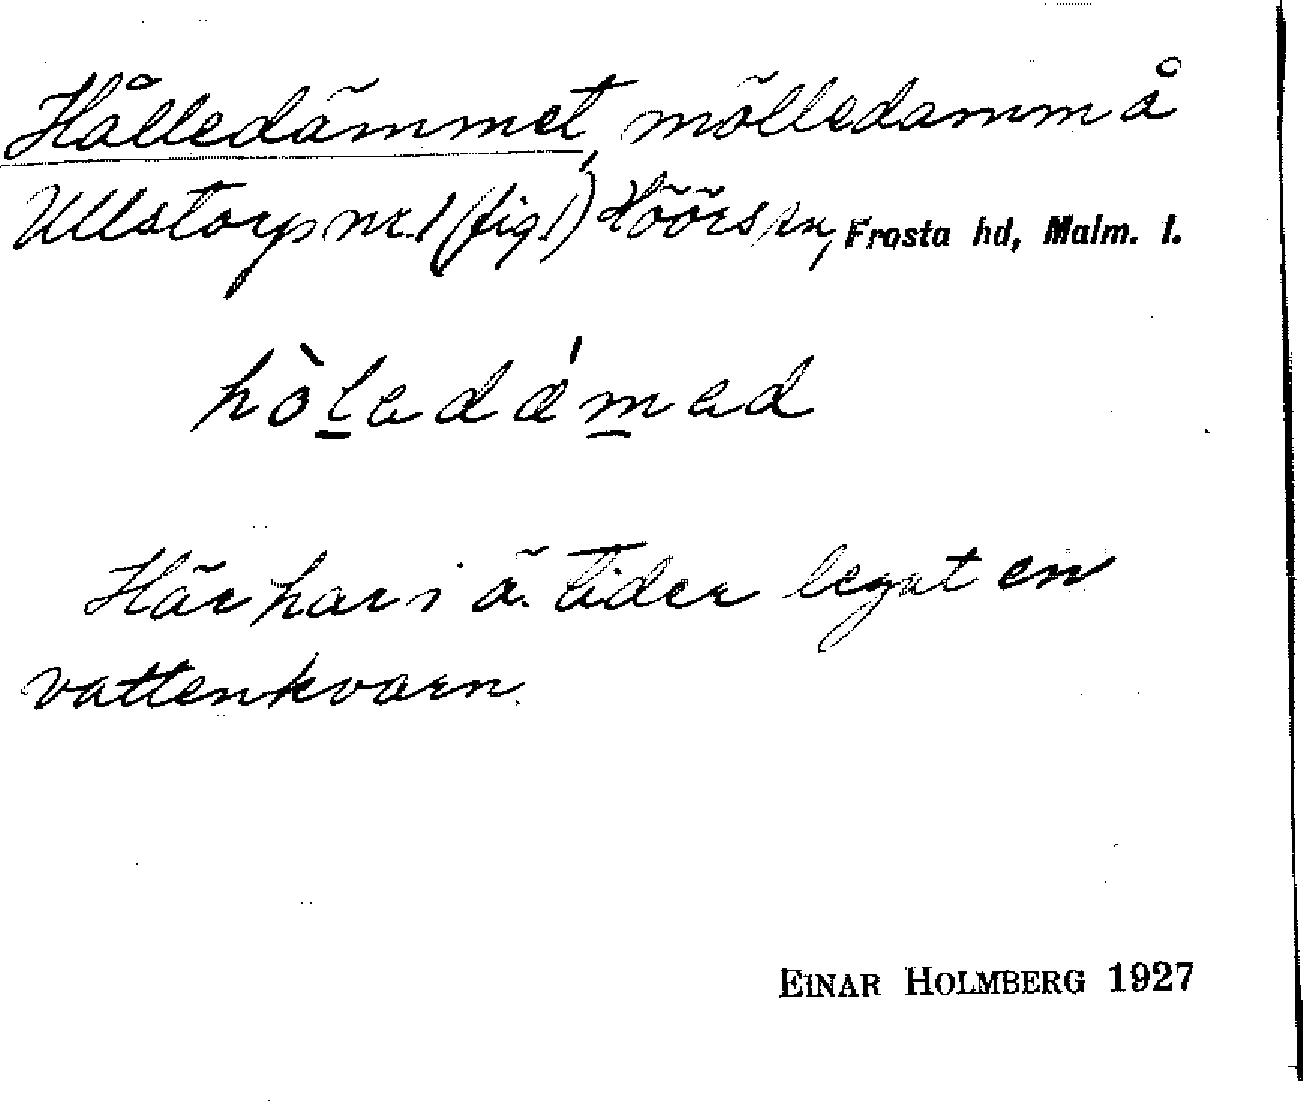 Hålledämmet, mölledamm å
Ullstorp nr 1 (fig 1) Höörs sn, Frosta hd, Malm. l.
hòladǽmad
Här har i ä. tider legat en
vattenkvarn.
EINAR HOLMBERG 1927